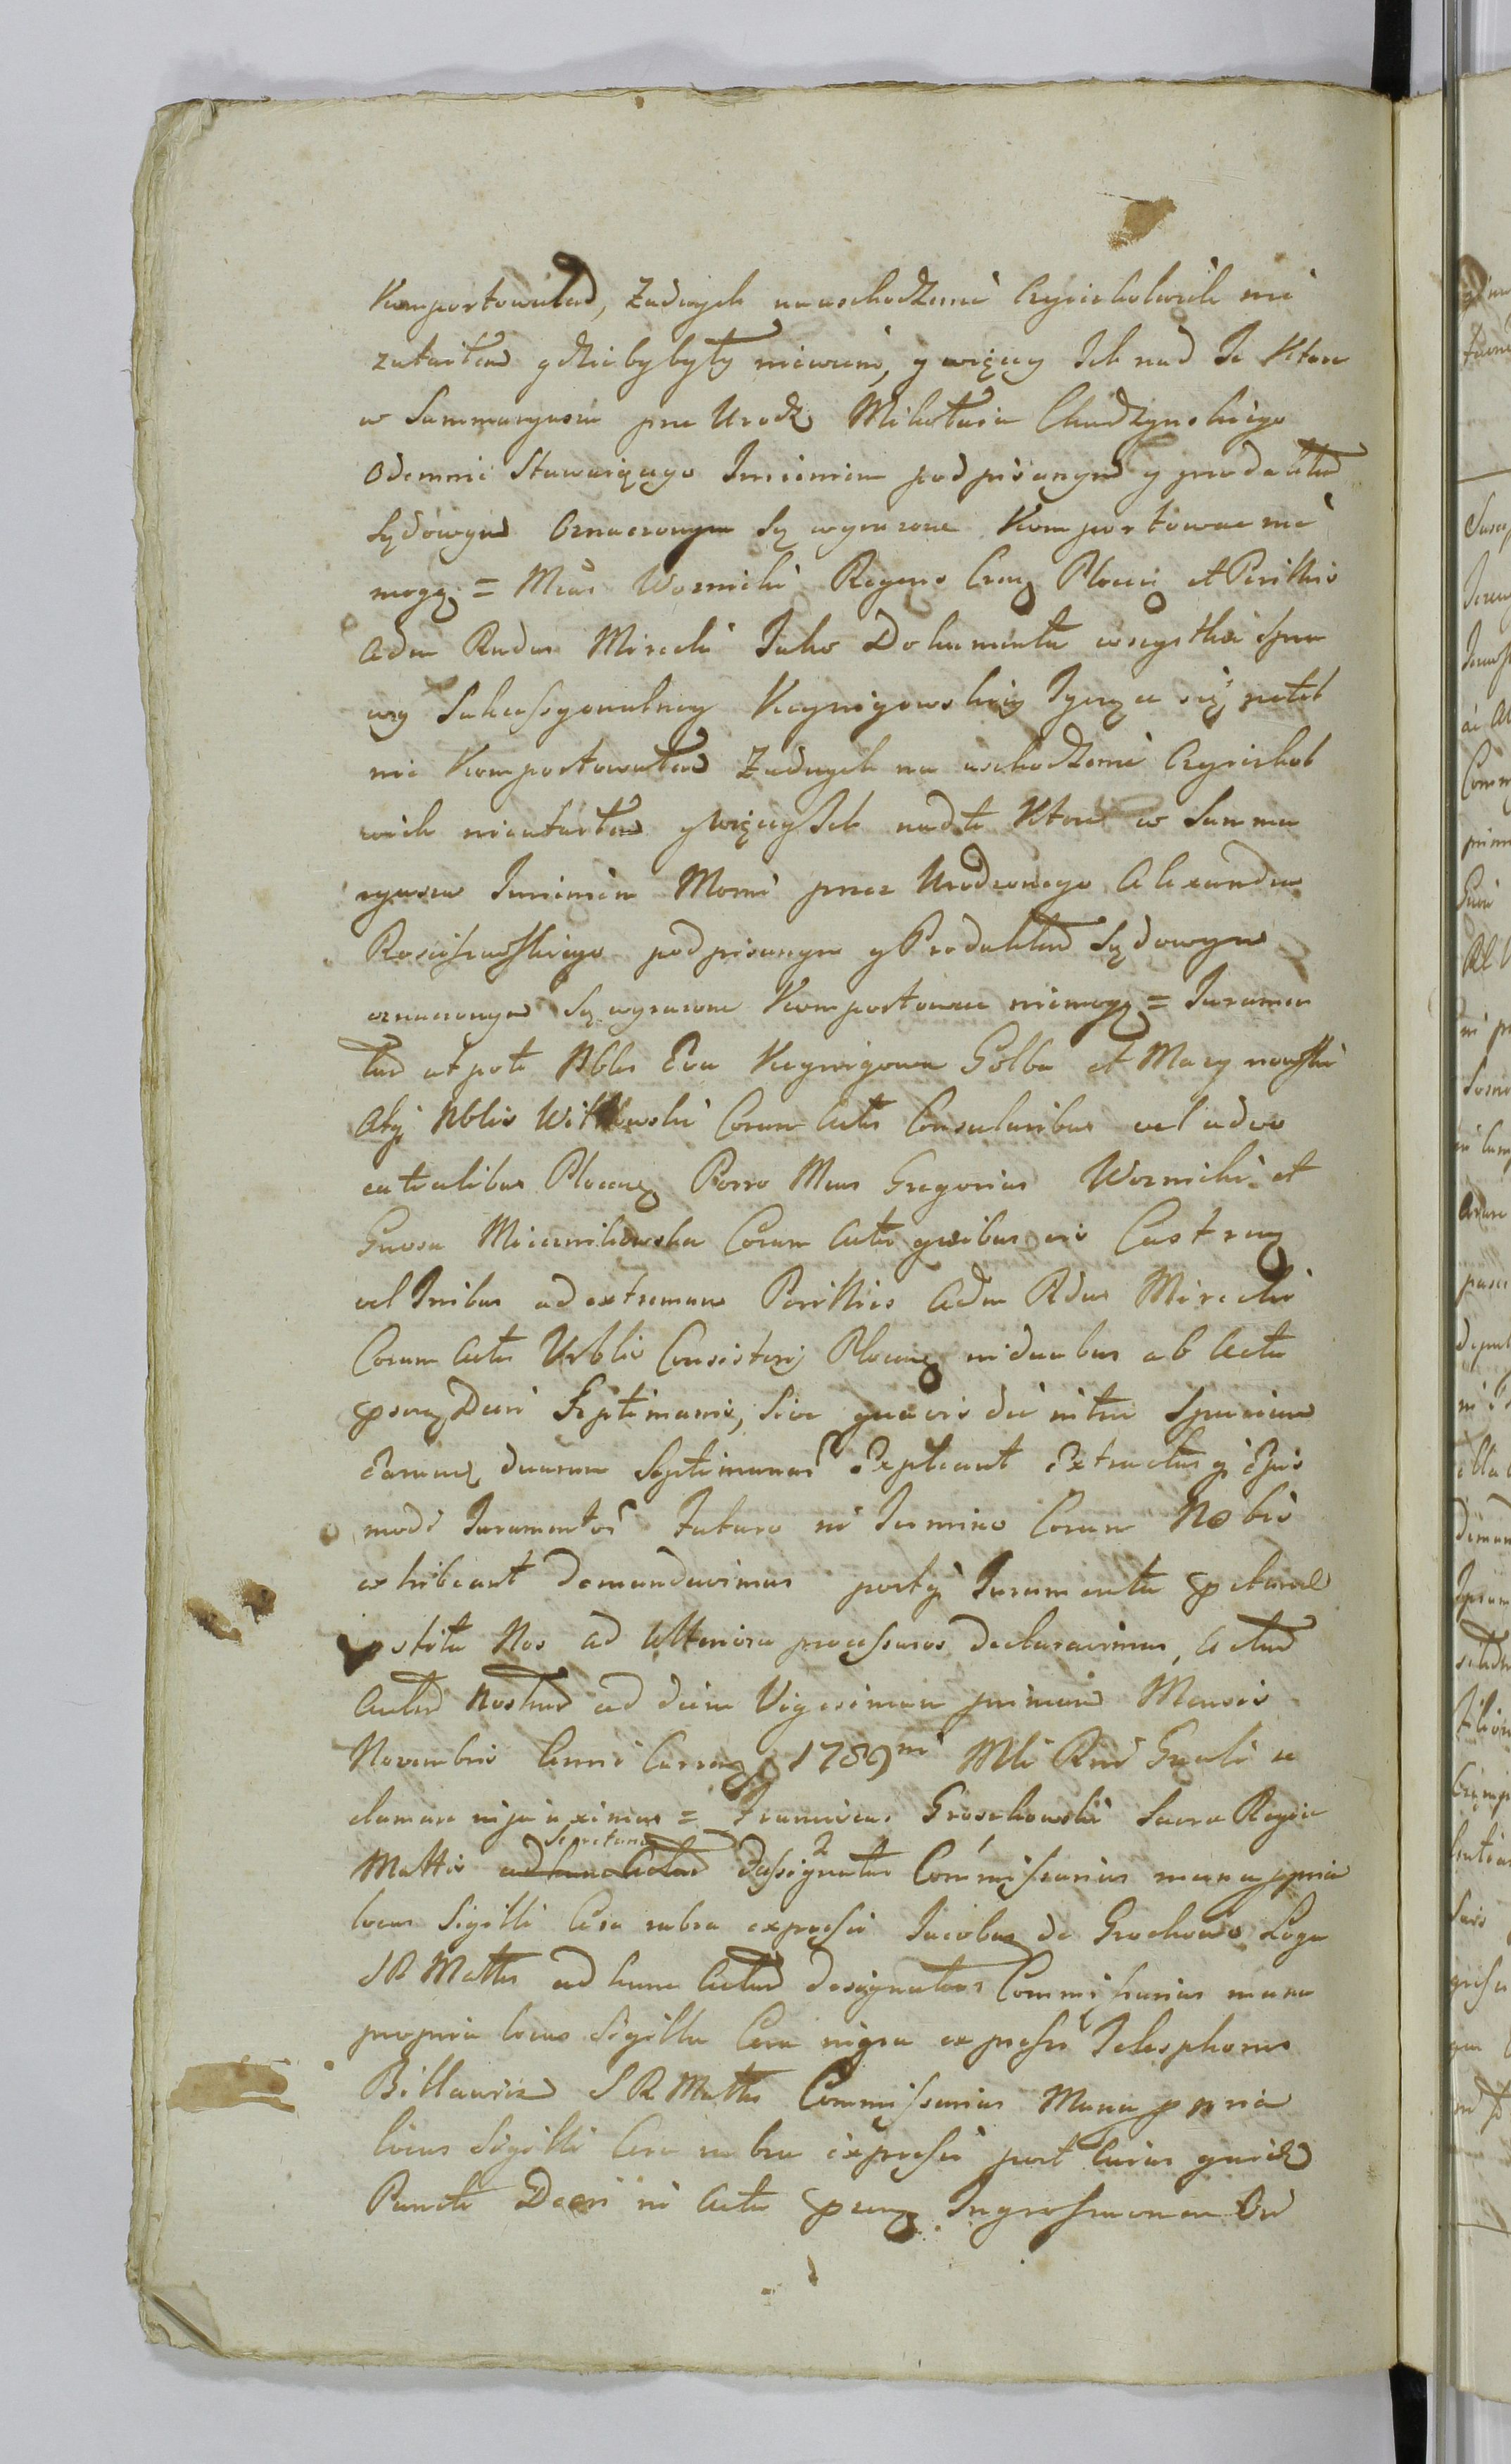 Komportowałem, żadnych na uschodzenie czyiekolwiek nie
zataiłem gdzieby były niewiem, y więcey Ich nad Te Ktore
w Summaryuszu prze Urodz Mikołaia Chudzynskiego
Odemnie Stawaiącego Imieniem podpisanym y produktem
Sądowym Oznaczonym Są wyrazone Komportowac nie
mogę = Mcus Woznicki Regens Cren Plocen et Perillris
Adm Rndus Mirecki Jako Dokumenta wszystkie spra
wy Sukcessyonalney Keynigowskiey Tyczące się zupeł
nie Komportowałem Zadnych na uschodzenie Czyiekol
wiek nieutaiłem y więcey Ich nad te Ktore w Summa
ryuszu Imieniem Moim przez Urodzonego Alexandra
Rosciszewskiego podpisanym y Produktem Sądowym
oznaczonym Są wyrazone Komportowac niemogę = Juramen
tum ut pote Nbles Eva Keynigowa Golba et Marynowski
Atq Nblis Witkowski Coram Actis Consularibus vel advo
catialibus Plocen Porro Mcus Gregorius Woznicki et
Gnosa Miecznikowska Coram Actis quibusvis Castren
vel Tribus ad extremum Perillris Adm Rdus Mirecki
Coram Actis Vrblis Consistorij Plocen in duabus ab Actu
pnrae Decri Septimanis, sive quavis die intra spatium
earum duarum Septimanar expleant Extractusq ejus
modi Juramentor futuro in Termino Coram Nobis
exhibeant demandavimus postq Juramenta
stita Nos ad Ulteriora processuros declaravimus, Actum
Autem Nostrum ad diem Vigesimam primam Mensis
Novembris Anni Curren 1789ni Mli Rni Gnali ac
clamare injunximus = Franciscus Groschowski Sacrae Regiae
Secretarius
Mattis ad hunc Actum Designatus Commissarius manu ppria
locus Sigilli Cera rubra expressi Jacobus de Grochowo Loga
S R Mattis ad hunc Actum designatus Commissarius manu
propria locus Sigilli Cera nigra expressi Telesphorus
Billawicz S R Mattis Commissarius Manu ppria
locus Sigilli Cera rubra expressi post Cuius quid
Puncti Decri in Acta pnrae Ingrossationem Ori